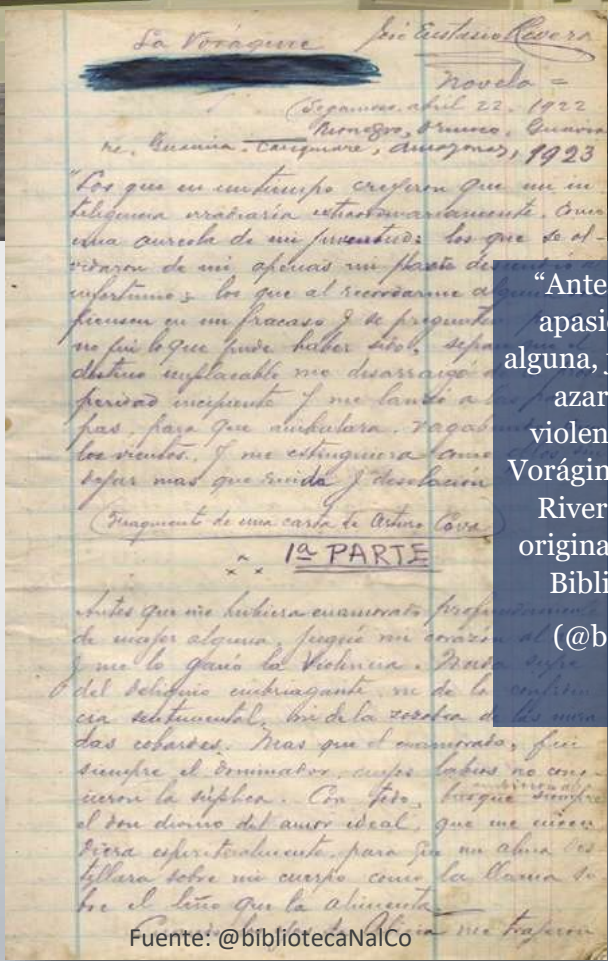 La Vorágine José Eustasio Rivera
novela =
(Sogamoso. abril 22. 1922
Rionegro, Orinoco, Guavia
re, Guainía. Casiquiare, Amazonas, 1923
"Los que en un tiempo creyeron que mi in
teligencia irradiaría extraordinariamente. Como
una aureola de mi juventud; los que se ol-
vidaron de mi apenas mi planta descendió al
infortunio; los que al recordarme
piensen en un fracaso y se pregunten
no fuí lo que pude haber sido, sepan que el
destino implacable me desarraigó de
peridad incipiente y me lanzó a las
pas, para que ambulara, vagabundo
los vientos, y me extinguiera como ellos sin
dejar mas que ruido y desolación
(Fragmento de una carta de Arturo Cova)
1ª PARTE
Antes que me hubiera enamorado profundamente
de mujer alguna, jugué mi corazón al
y me lo ganó la Violencia. Nada supe
del deliquio embriagante, ni de la confiden
cia sentimental, ni de la zozobra de las mira
das cobardes. Mas que el enamorado, fui
siempre el dominador, cuyos labios no cono-
cieron la súplica. Con todo, busqué siempre
el don divino del amor ideal, que me encen
diera espiritualmente, para que mi alma des
tellara sobre mi cuerpo como la llama so
bre el leño que la alimenta.
Cuando los ojos de Alicia me trajeron
Fuente: @bibliotecaNalCo
"Ante
apasi
alguna, j
azar
violen
Vorágin
River
origina
Bibli
(@b